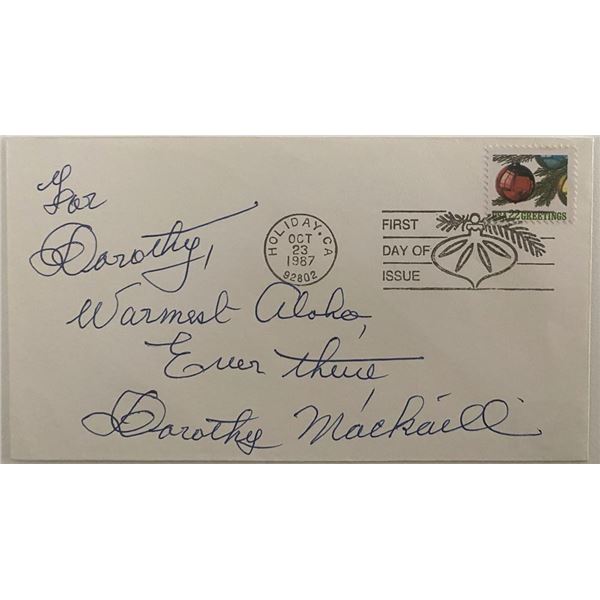 For
Dorothy,
Warmest Aloha,
Ever thine,
Dorothy Mackaill
HOLIDAY·CA
OCT
23
1987
92802
FIRST
DAY OF
ISSUE
USA 22 GREETINGS